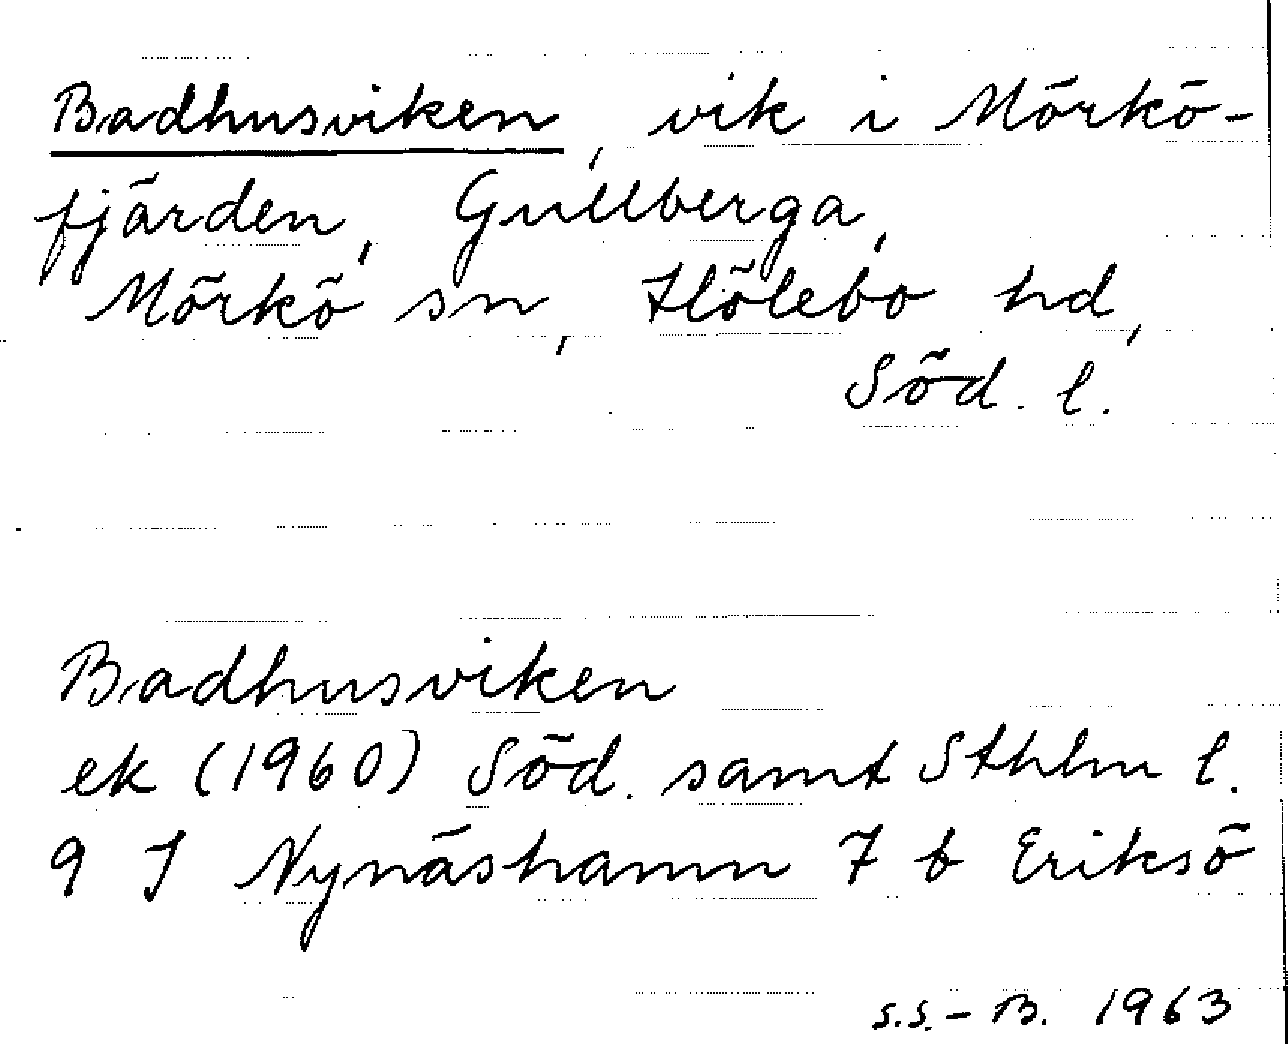 Badhusviken, vik i Mörkö-
fjärden, Gullberga,
Mörkö sn, Hölebo hd,
Söd. l.
Badhusviken
ek (1960) Söd. samt Sthlm l.
9 I Nynäshamn 7 b Eriksö
S.S.-B. 1963